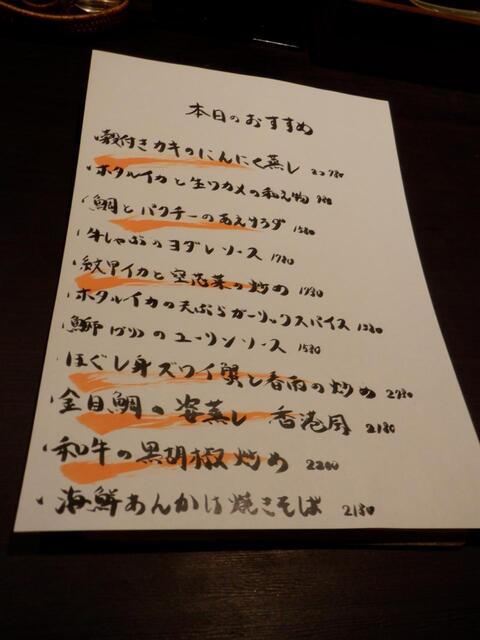 本日のおすすめ
・殻付きカキのにんにく蒸し 2コ780
・ホタルイカと生ワカメの和え物 980
・鯛とパクチーのあえサラダ 1580
・牛しゃぶのヨダレソース 1780
・紋甲イカと空芯菜の炒め 1980
・ホタルイカの天ぷらガーリックスパイス 1280
・鰤のユーリンソース 1580
・ほぐし身ズワイ蟹と春雨の炒め 2980
・金目鯛の姿蒸し 香港風 2180
・和牛の黒胡椒炒め 2200
・海鮮あんかけ焼きそば 2180